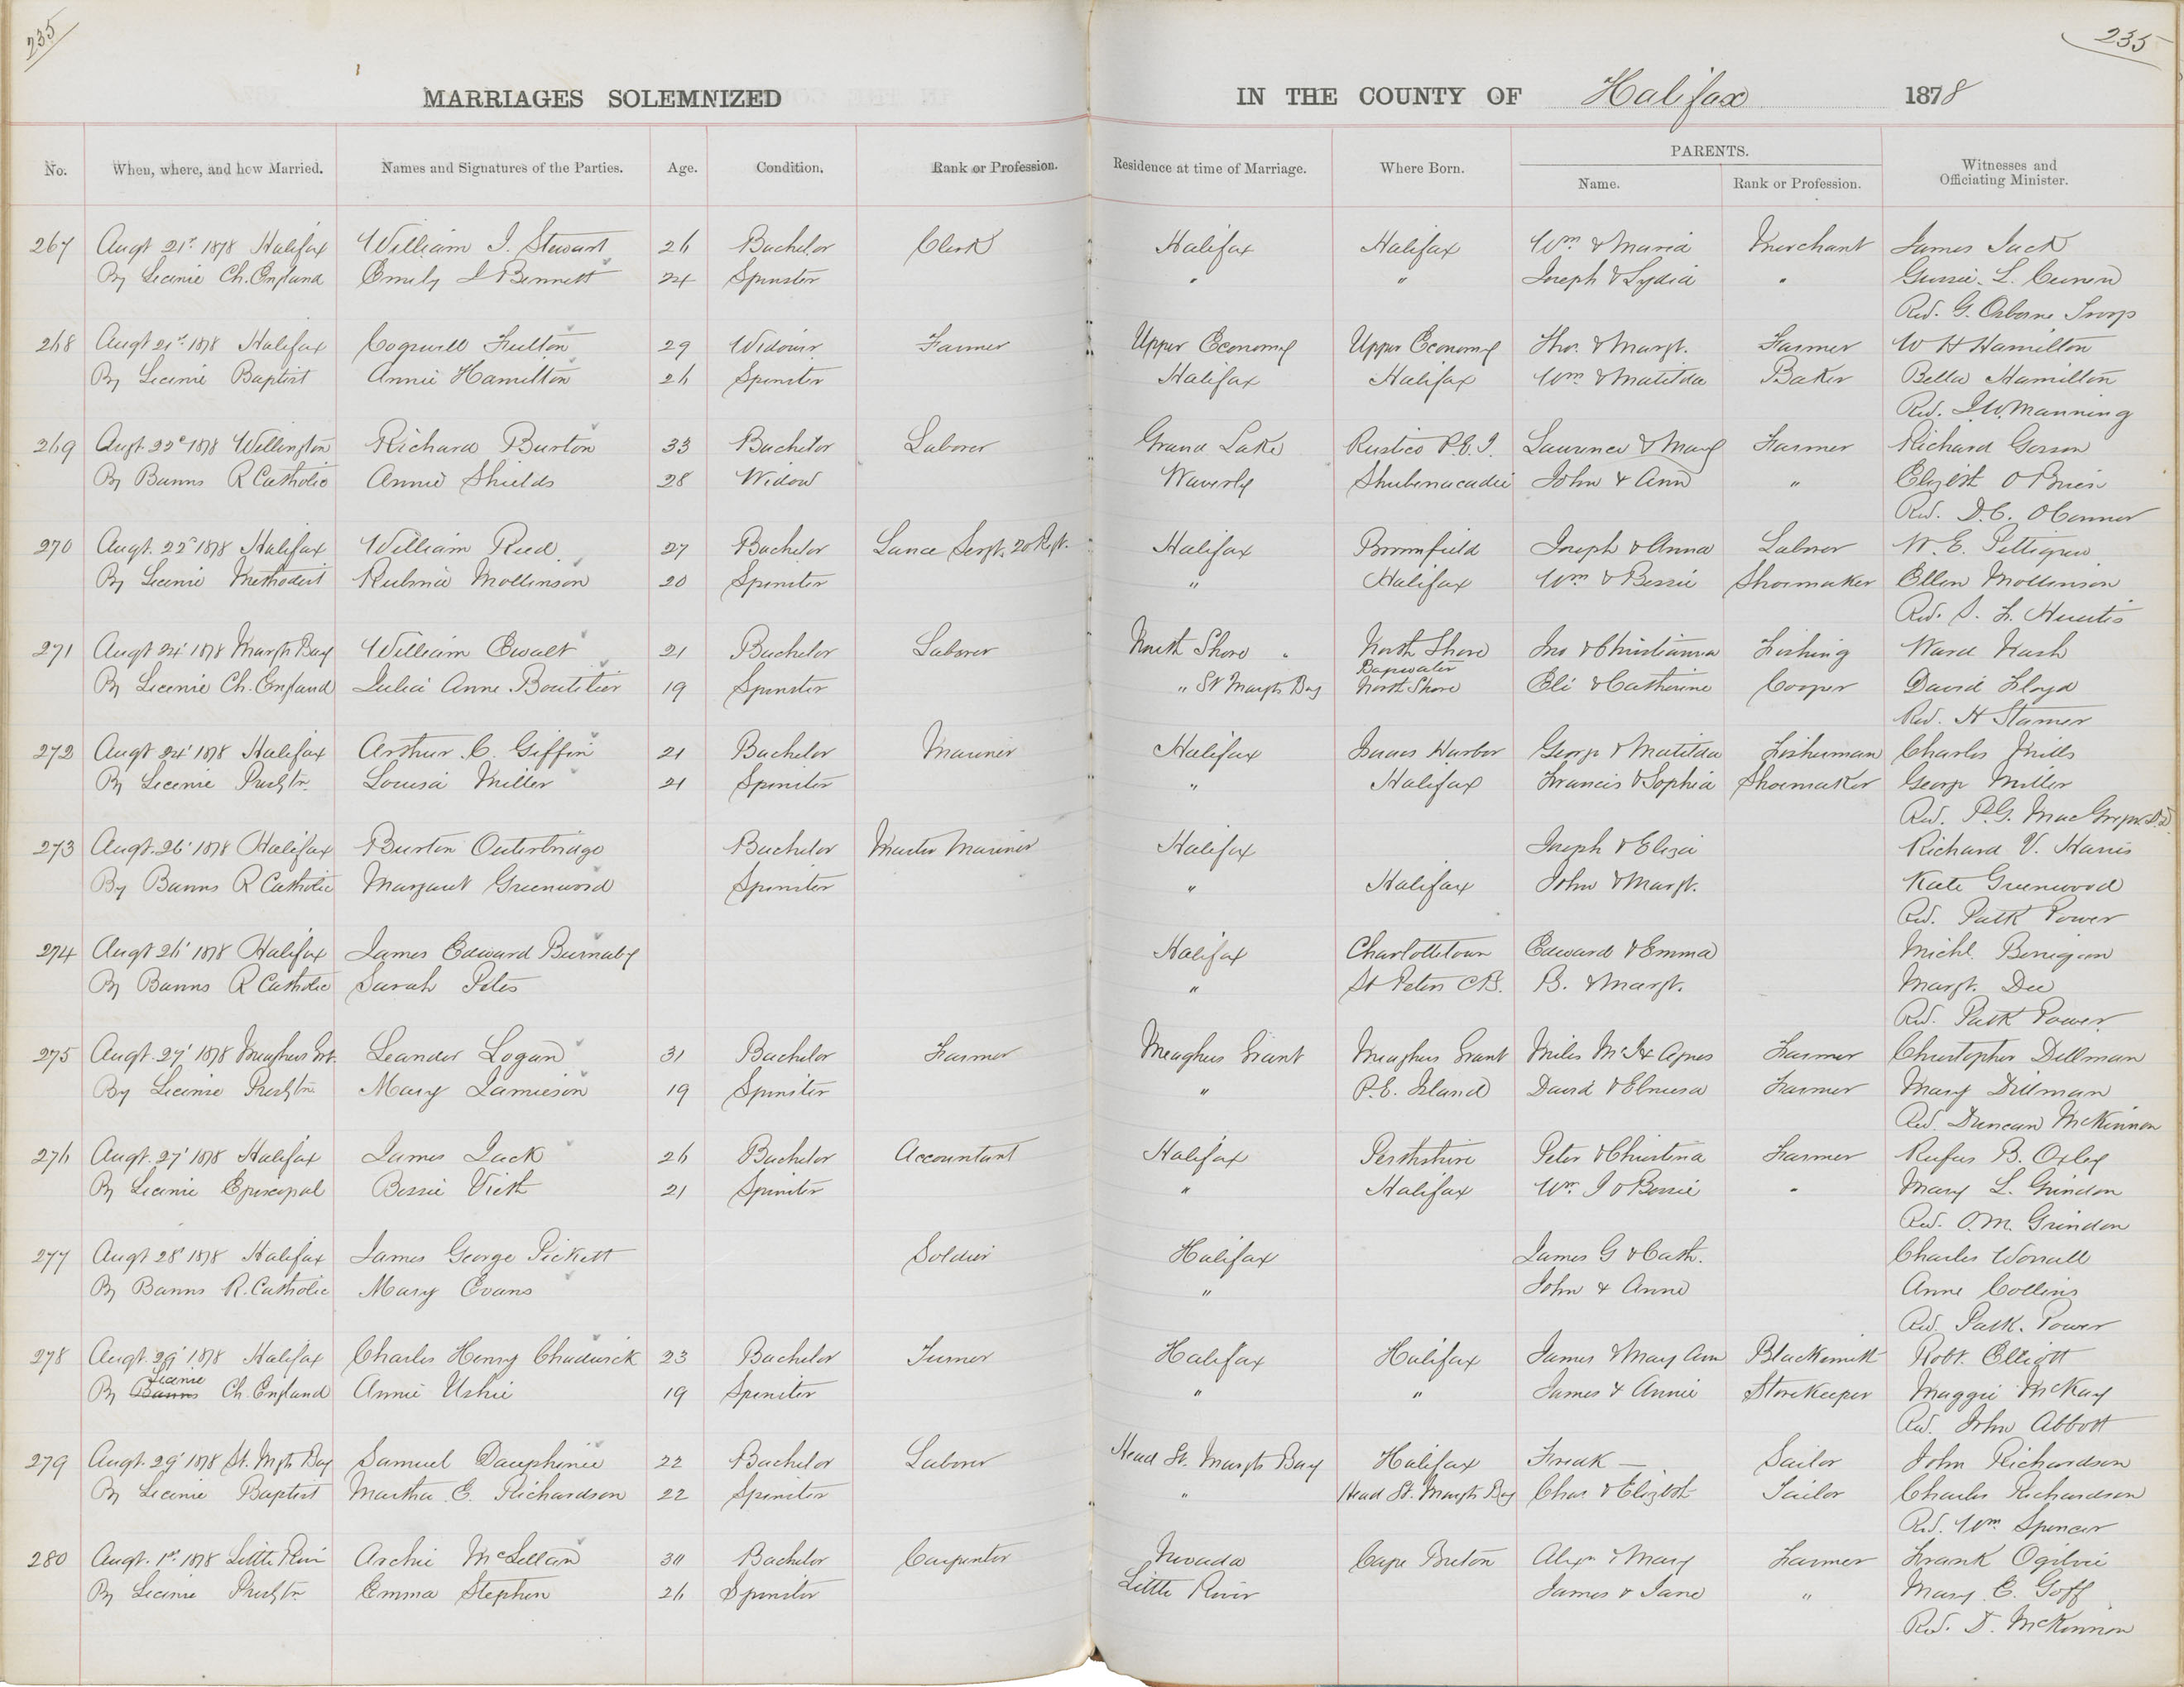 235
235
MARRIAGES SOLEMNIZED IN THE COUNTY OF Halifax 1878
No. When, where, and how Married. Names and Signatures of the Parties. Age. Condition. Rank or Profession. Residence at time of Marriage. Where Born. PARENTS. Name. Rank or Profession. Witnesses and Officiating Minister.
267 Augt 21st 1878 Halifax William I. Stewart 26 Bachelor Clerk Halifax Halifax Wm & Maria Merchant James Jack
By Licence Ch. England Emily I Bennett 24 Spinster " " Joseph & Lydia " L.
Rev. G. Osborne Troop
268 Augt 21st 1878 Halifax Cogswell Fulton 29 Widower Farmer Upper Economy Upper Economy Thos. & Margt. Farmer W H Hamilton
By Licence Baptist Annie Hamilton 26 Spinster Halifax Halifax Wm & Matilda Baker Bella Hamilton
Rev. J W. Manning
269 Augt. 22d 1878 Wellington Richard Burton 33 Bachelor Laborer Grand Lake Rustico P.E.I. Laurence & Mary Farmer Richard
By Banns R Catholic Annie Shields 28 Widow Waverly Shubenacadie John & Ann " Elizbth O Brien
Rev. D.C. OConnor
270 Augt. 22d 1878 Halifax William Reed 27 Bachelor Lance Sergt. 20 Regt. Halifax Broomfield Joseph & Anna Laborer W. E. Pettigrew
By Licence Methodist Mollinson 20 Spinster " Halifax Wm & Bessie Shoemaker Ellen Mollinson
Rev. S. F. Huestis
271 Augt 24' 1878 Margts Bay William Ewalt 21 Bachelor Laborer North Shore " North Shore Jno & Christianna Fishing Ward Nash
By Licence Ch. England Julia Anne Boutilier 19 Spinster " St Margts Bay Bayswater North Shore Eli & Catherine Cooper David Lloyd
Rev. H Stamer
272 Augt 24' 1878 Halifax Arthur C. Giffin 21 Bachelor Mariner Halifax Isaacs Harbor George & Matilda Fisherman Charles Mills
By Licence Presbtn. Louisa Miller 21 Spinster " Halifax Francis & Sophia Shoemaker George Miller
Rev. P.G. MacGregor D.D.
273 Augt. 26' 1878 Halifax Burton Outerbridge Bachelor Master Mariner Halifax Joseph & Eliza Richard V. Harris
By Banns R Catholic Margaret Greenwood Spinster " Halifax John & Margt. Kate Greenwood
Rev. Patk Power
274 Augt 26' 1878 Halifax James Edward Burnaby Halifax Charlottetown Edward & Emma Michl.
By Banns R Catholic Sarah Pitts " St Peters C.B. B. & Margt. Margt. Dee
Rev. Patk Power
275 Augt. 27' 1878 Meaghers Grt. Leander Logan 31 Bachelor Farmer Meaghers Grant Meaghers Grant Miles McI & Agnes Farmer Christopher Dillman
By Licence Presbtn. Mary Jamieson 19 Spinster " P.E. Island David & Farmer Mary Dillman
Rev. Duncan McKinnon
276 Augt. 27' 1878 Halifax James Jack 26 Bachelor Accountant Halifax Perthshire Peter & Christina Farmer Rufus B. Oxley
By Licence Episcopal Bessie Vieth 21 Spinster " Halifax Wm. J & Bessie " Mary L. Grindon
Rev. O.M. Grindon
277 Augt 28' 1878 Halifax James George Pickett Soldier Halifax James G & Cath. Charles Worrall
By Banns R. Catholic Mary Evans " John & Anne Anne Collins
Rev. Patk. Power
278 Augt. 29' 1878 Halifax Charles Henry Chadwick 23 Bachelor Turner Halifax Halifax James & Mary Ann Blacksmith Robt. Elliott
By Banns Licence Ch. England Annie Ushie 19 Spinster " " James & Annie Storekeeper Maggie McKay
Rev. John Abbott
279 Augt. 29' 1878 St. Mgts Bay Samuel Dauphinie 22 Bachelor Laborer Head St. Margts Bay Halifax Fredk — Sailor John Richardson
By Licence Baptist Martha E. Richardson 22 Spinster " Head St. Margts Bay Chas & Elizbth Tailor Charles Richardson
Rev. Wm Spencer
280 Augt. 1st 1878 Little River Archie McLellan 30 Bachelor Carpenter Nevada Cape Breton Alexr & Mary Farmer Frank Ogilvie
By Licence Presbtn. Emma Stephen 26 Spinster Little River James & Jane " Mary E. Goff
Rev. D. McKinnon